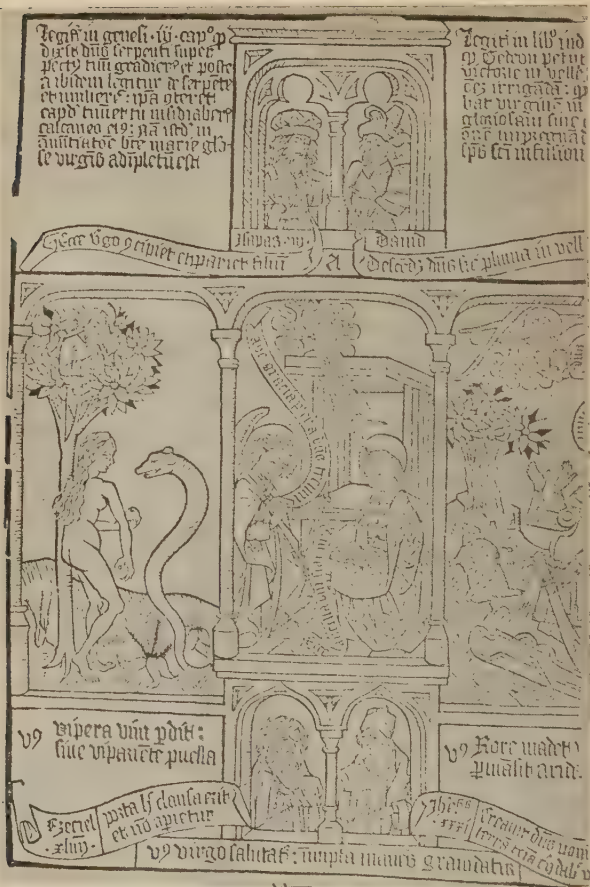 Legit in genesi · iij · cap° q
dixit dns serpenti super
pectꝰ tuū gradierꝭ et poste
a ibidem legitur de serpēte
et muliere : ipā ꝯteret
capd tuū et tu insidiaberꝭ
calcaneo eiꝰ : nā istd in
ānūtiatōe bte marie glo-
se virgīs adīpletū est
Legit in lib° iud
q Gedeon petiit
victorie in velle
irrigādā : q
bat virginē
gloriosam sine
impregnād
spūs scī infusion
Ecce v̄go ꝯcipiet et pariet filiū
Isayas · vij ·
A
David
Descedꝫ dns sic pluvia in vell
Ave gracia plena dns tecum
vꝰ vipera vim pdit :
sine vi pariēte puella
vꝰ Rore madet
Pmāsit arid
Ezeciel
· xliiij ·
porta hec clausa erit
et nō apietur
Jhr̄e
· xxxi ·
Creavit dns novū
vꝰ virgo salutat : īnupta manēs gravidatꝭ